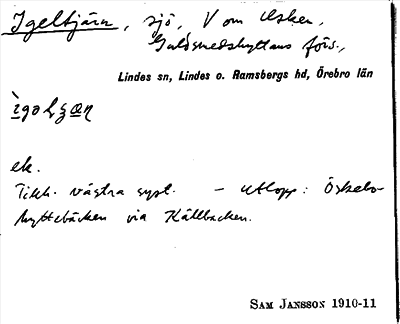 Igeltjärn, sjö, V om Asken,
Guldsmedshyttans förs.,
Lindes sn, Lindes o. Ramsbergs hd, Örebro län
ek.
västra syst. – utlopp: Öskebo-
hyttebäcken via Källbacken.
SAM JANSSON 1910-11